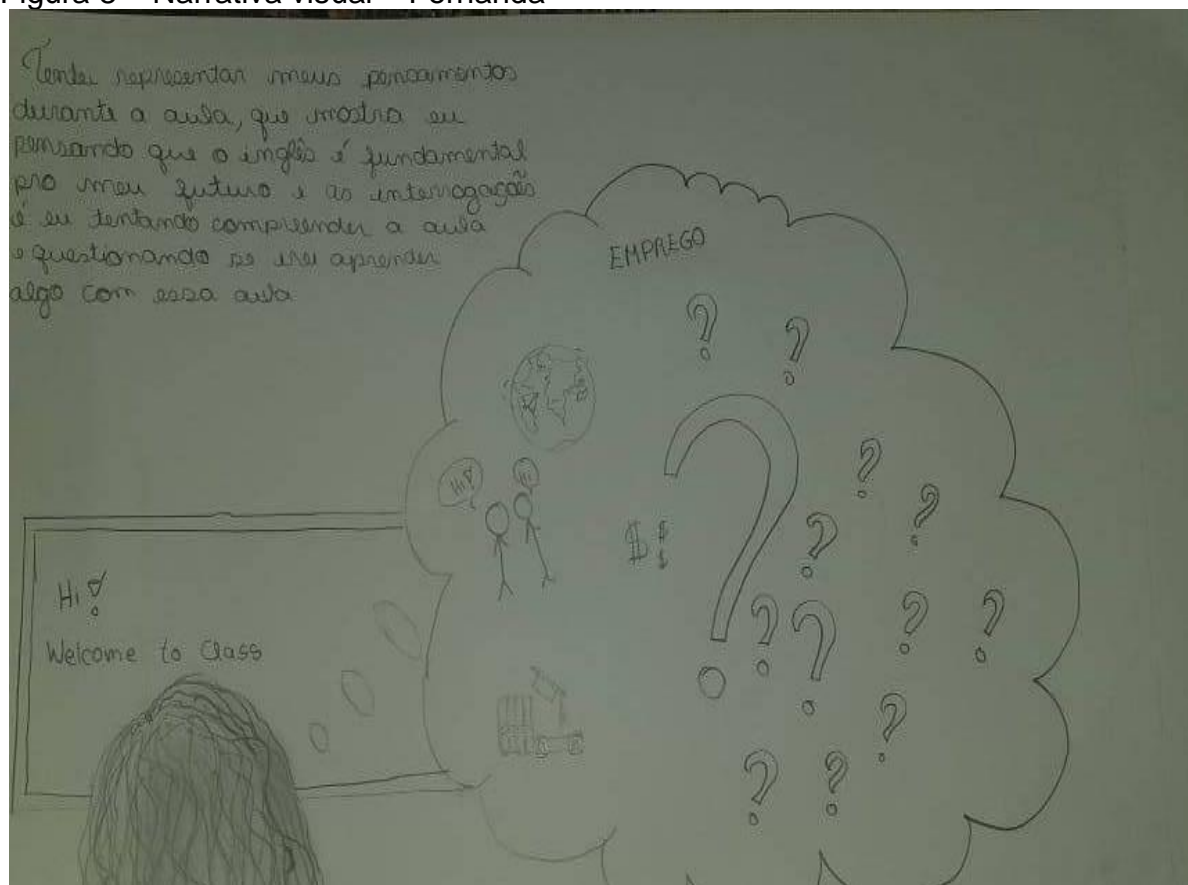 Tentei representar meus pensamentos
durante a aula, que mostra eu
pensando que o inglês é fundamental
pro meu futuro e as interrogações
é eu tentando compreender a aula
e questionando se irei aprender
algo com essa aula
EMPREGO
? ?
?
Hi!
Hi
? ?
$ $
$
?
Hi!
Welcome to Class
? ? ? ?
?
? ?